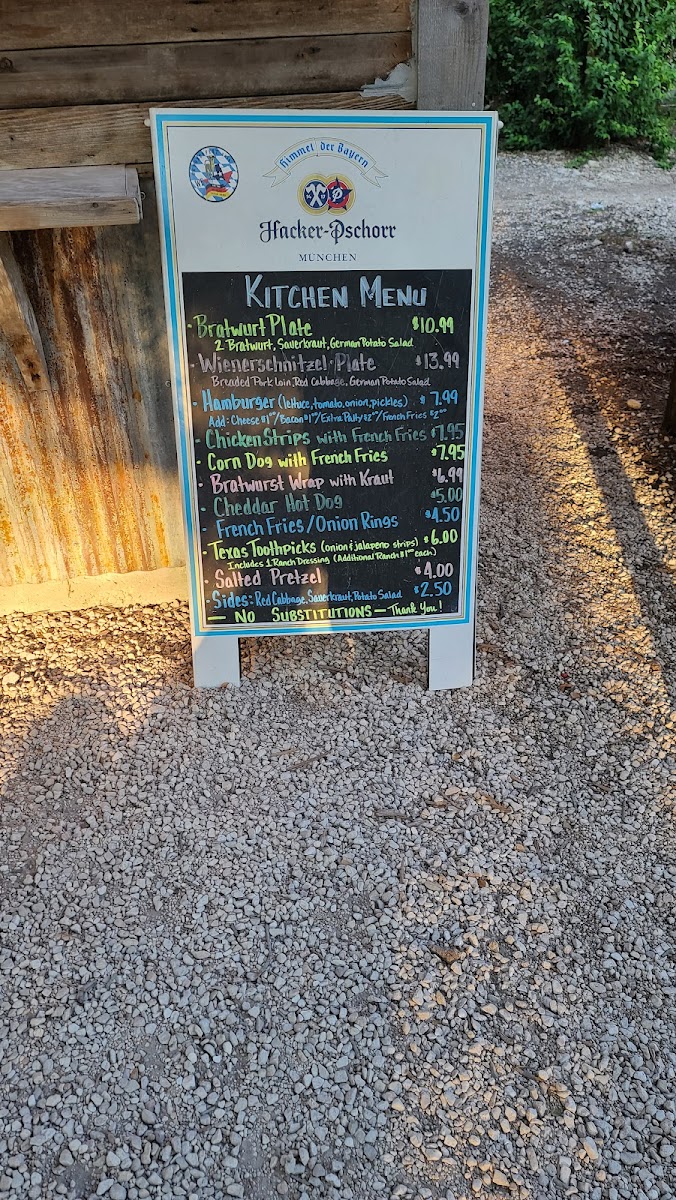 Himmel der Bayern
Hacker-Pschorr
MÜNCHEN
KITCHEN MENU
- Bratwurt Plate $10.99
2 Bratwurt, Sauerkraut, German Potato Salad
- Wienerschnitzel Plate $13.99
Breaded Pork Loin, Red Cabbage, German Potato Salad
- Hamburger (lettuce, tomato, onion, pickles) $7.99
Add: Cheese $1.00/Bacon $1.00/Extra Patty $2.00/French Fries $2.00
- Chicken Strips with French Fries $7.95
- Corn Dog with French Fries $7.95
- Bratwurst Wrap with Kraut $6.99
- Cheddar Hot Dog $5.00
- French Fries/Onion Rings $4.50
- Texas Toothpicks (onion & jalapeno strips) $6.00
Includes 1 Ranch Dressing (Additional Ranch $1.00 each)
- Salted Pretzel $4.00
- Sides: Red Cabbage, Sauerkraut, Potato Salad $2.50
— NO SUBSTITUTIONS — Thank You!